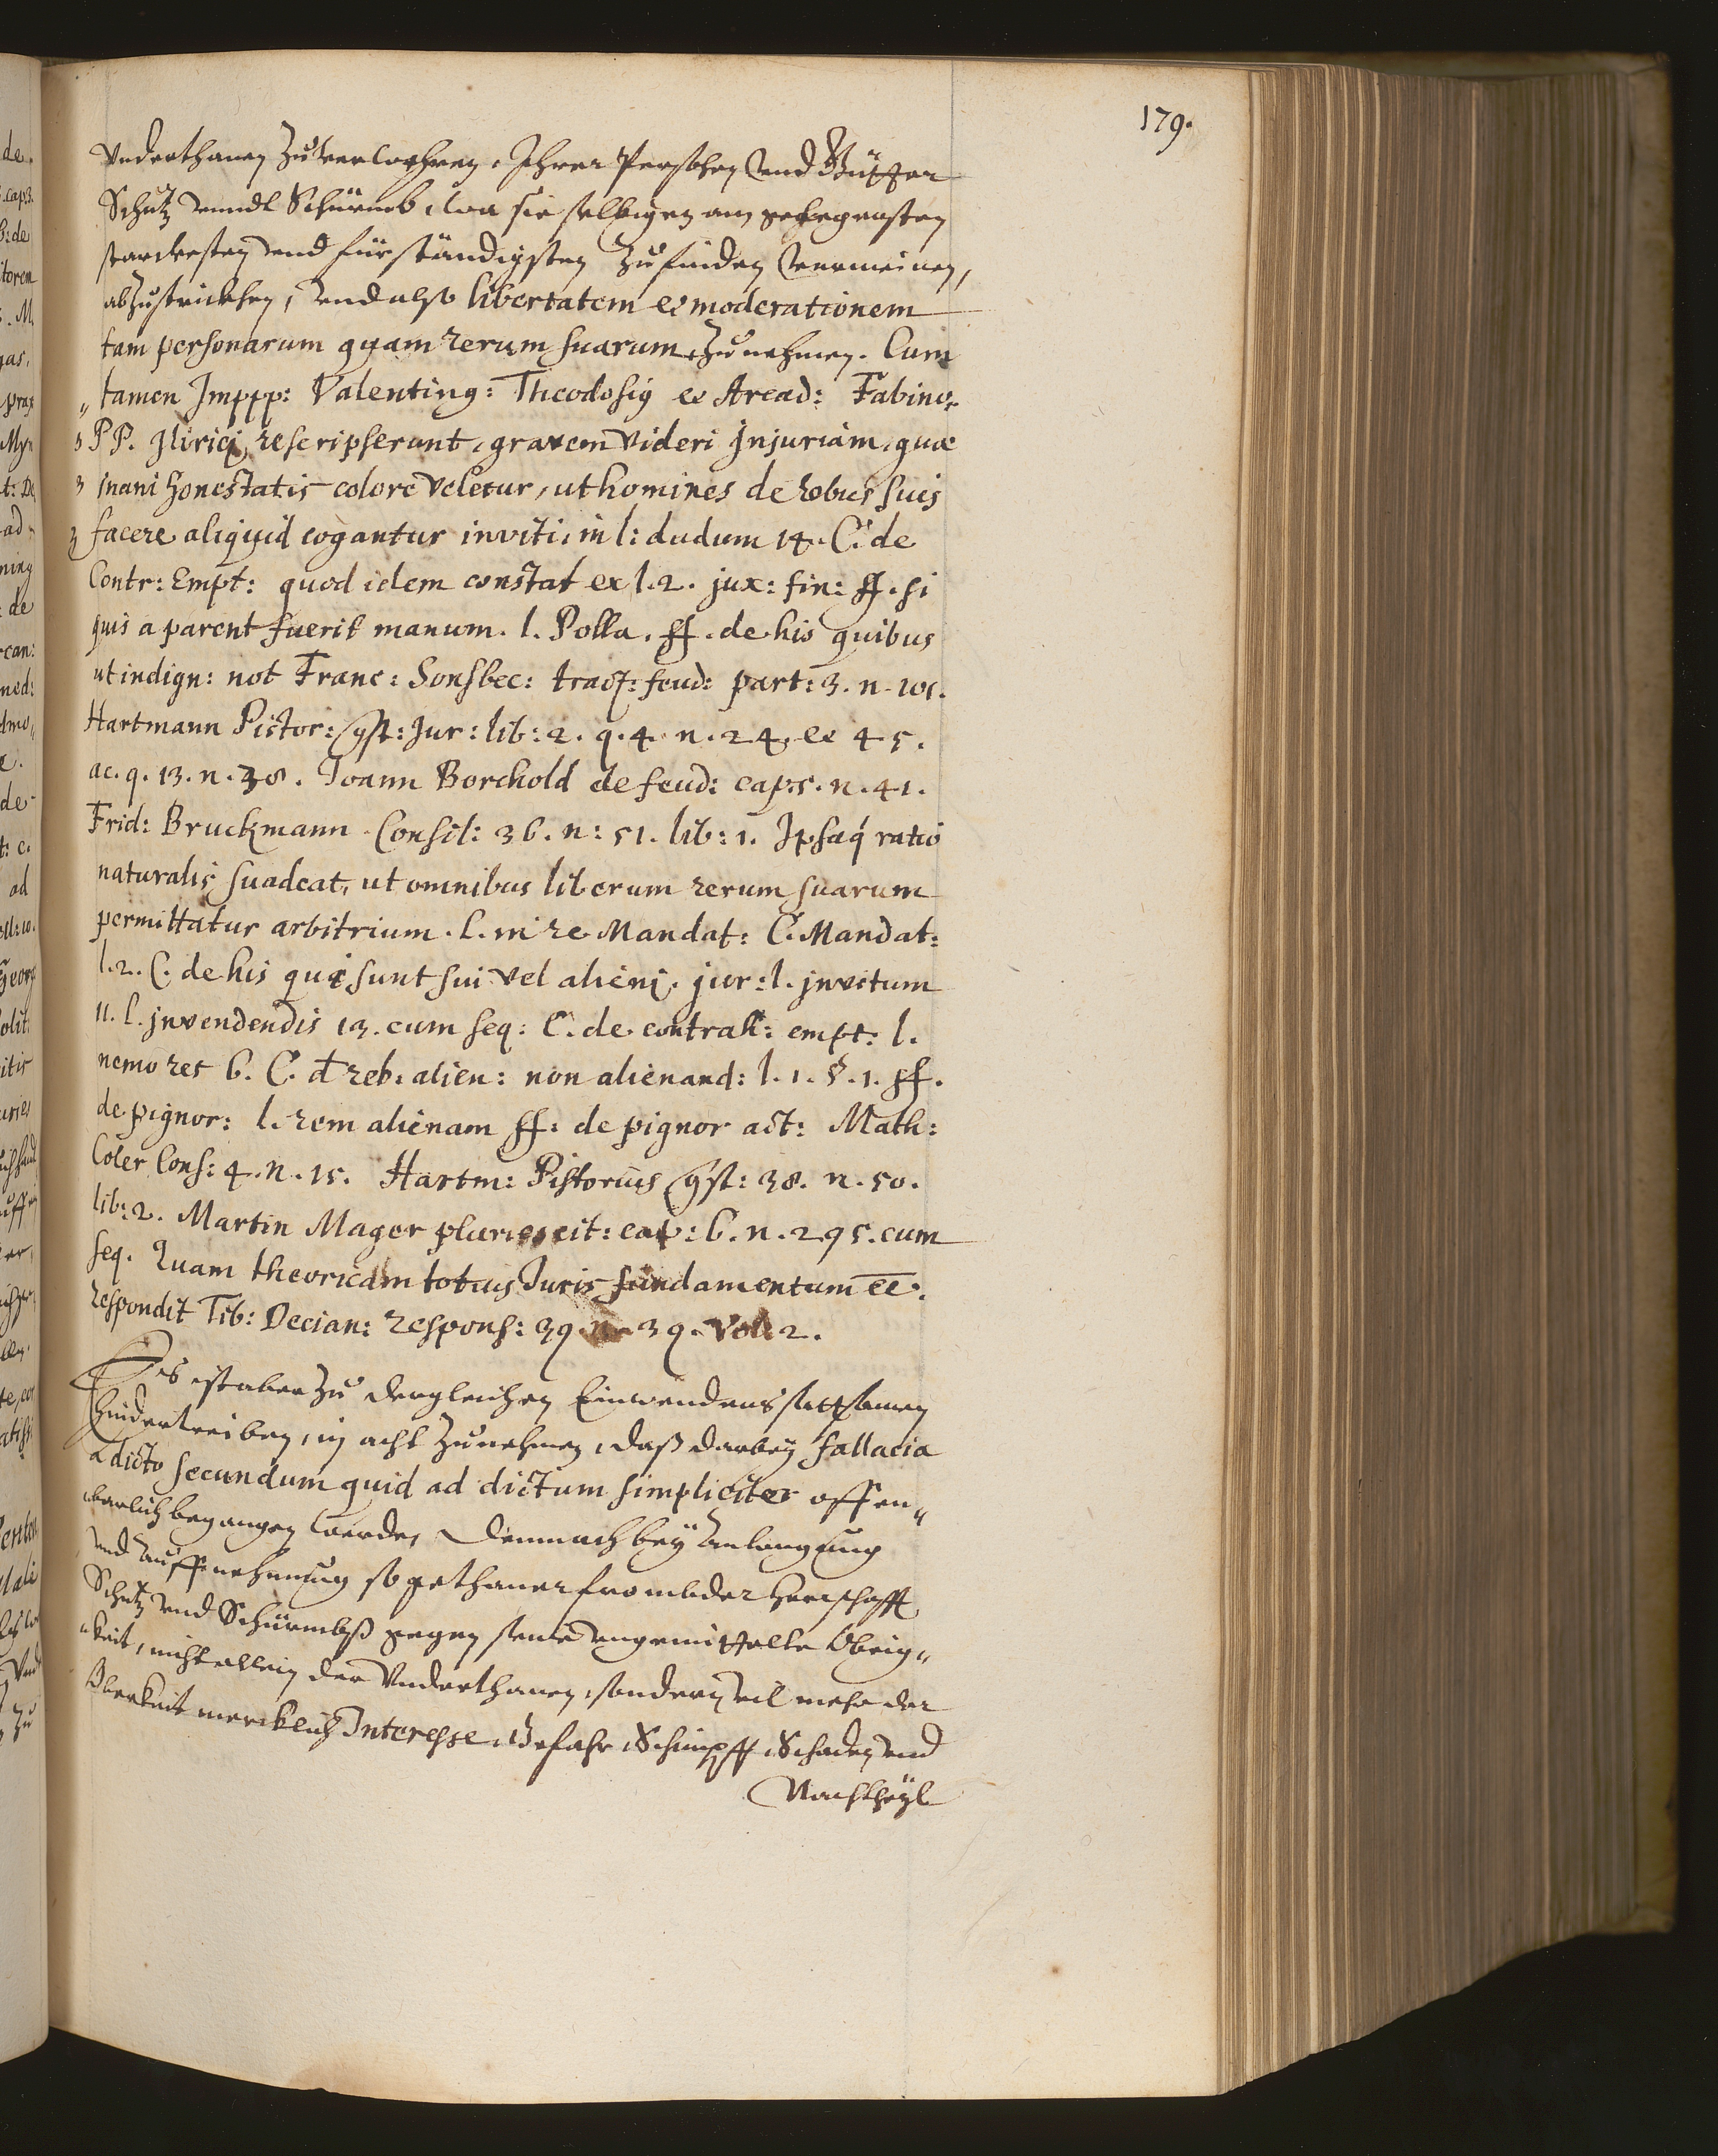 179.
Vnderthanen zu verwehren, Ihrer Persohen vnd Gütter
Schutz vnndt Schürmb, wa sie selbigen am gelegensten
starckesten vnd fürständigsten zu finden vermeinen,
abzustrickhen, vnd also libertatem et moderationem
tam personarum quam rerum suarum zu nehmen. Cum
„ tamen Imppp: Valentinꝰ: Theodosiꝰ et Arcad:
PP. Jlirici rescripserunt, gravem videri Injuriam, quæ
inani honestatis colore veletur, ut homines de rebus suis
facere aliquid cogantur inviti, in l: dudum 14. C. de
Contr: Empt: quod idem constat ex l. 2. jux: fin: ff. si
quis a parent fuerit manum. l. Polla. ff. de his quibus
ut indign: not Franc: Sonsbec: tract: feud: part: 3. n. 101.
Hartmann Pistor: qst: Jur: lib: 2. q. 4. n. 24. et 45.
ac. q. 13. n. 38. Joann Borchold de feud: cap. 5. n. 41.
Frid: Bruckmann Consil: 36. n: 51. lib: 1. Ipsaq́ ratio
naturalis suadeat, ut omnibus liberum rerum suarum
permittatur arbitrium. l. in re Mandat: C. Mandat:
l. 2. C. de his qui sunt sui vel alieni. jur: l. jnvitum
11. l. jnvendendis 13. cum seq: C. de contrah: empt: l.
nemo res 6. C. d reb. alien: non alienand: l. 1. §. 1. ff.
de pignor: l. rem alienam ff: de pignor act: Math:
Coler Cons: 4. n. 15. Hartm: Pistorius qst: 38. n. 50.
lib: 2. Martin Mager pluries cit: cap: 6. n. 295. cum
seq. Quam theoricam totius Juris fundamentum ee.
respondit Tib: Decian: respons: 39. n. 39. Vol. 2.
Es ist aber zu dergleichen Einwendens sattsamen
hindertreiben, in acht zunehmen, daß darbey fallacia
a dicto secundum quid ad dictum simpliciter offen„
barlich begangen werde, demnach bey anlangung
vnd auffnehmung so gethaner frombder herschafft
Schutz vnd Schürmbß gegen seine vngemittelte Obrig„
keit, nicht allein der Vnderthanen, sondern vil mehr der
Oberkeit mercklich Interesse, Gefahr, Schimpff, Schaden vnd
Nachtheyl